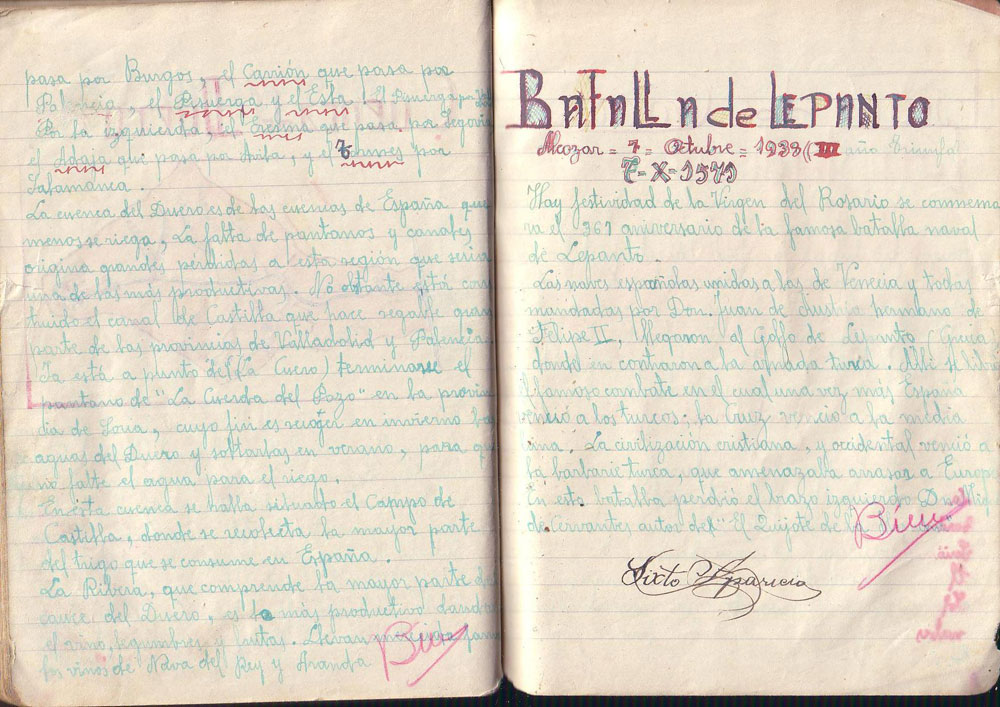 pasa por Burgos, el Carrión que pasa por
Palencia, el Pisuerga y el Esla. El Pisuerga por
Por la izquierda, el Eresma que pasa por Segovia
el Adaja que pasa por Avila, y el Tormes por
Salamanca.
La cuenca del Duero es de las cuencas de España que
menos se riega, La falta de pantanos y canales
origina grandes pérdidas a esta región que seria
una de las más productivas. No obtante está cons
truido el canal de Castilla que hace regable gran
parte de las provincias de Valladolid y Palencia.
Ya está a punto de (La Cuero) terminarse el
pantano de "La Cuerda del Pozo" en la provin
cia de Soria, cuyo fin es recoger en invierno las
aguas del Duero y soltarlas en verano, para que
no falte el agua para el riego.
En esta cuenca se halla situado el Campo de
Castilla, donde se recolecta la mayor parte
del trigo que se consume en España.
La Ribera, que comprende la mayor parte del
cauce del Duero, es lo más productivo dando
el vino, legumbres y frutas. Llevan fama
los vinos de Nava del Rey y Aranda
Bien
BATALLA de LEPANTO
Alcozar = 7 = Octubre = 1938 (III año Triunfal
7-X-1571
Hay festividad de la Virgen del Rosario se conmemo
ra el 367 aniversario de la famosa batalla naval
de Lepanto.
Las naves españolas unidas a las de Venecia y todas
mandadas por Don. Juan de Austria hermano de
Felipe II, llegaron al Golfo de Lepanto (Grecia
donde en contraron a la armada turca. Allí se libro
el famoso combate en el cual una vez más España
venció a los turcos; la Cruz venció a la media
luna. La civilización cristiana, y occidental venció a
la barbarie turca, que amenazaba arrasar a Europa
En esta batalla perdió el brazo izquierdo D. Mig
de cervantes autor del "El Quijote de la
Bien
Sixto Aparicio